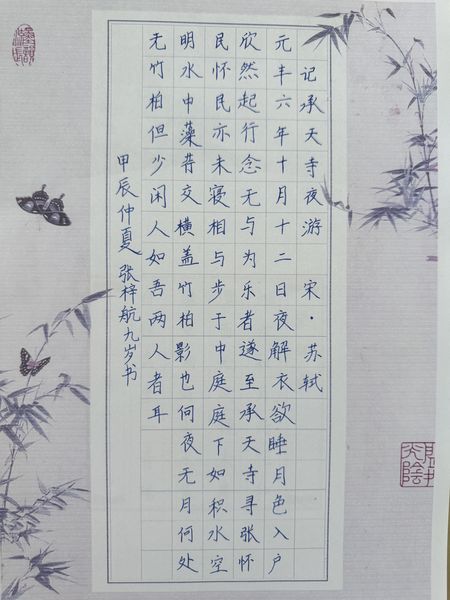 记承天寺夜游 宋·苏轼
元丰六年十月十二日夜解衣欲睡月色入户
欣然起行念无与为乐者遂至承天寺寻张怀
民怀民亦未寝相与步于中庭庭下如积水空
明水中藻荇交横盖竹柏影也何夜无月何处
无竹柏但少闲人如吾两人者耳
甲辰仲夏 张梓航九岁书